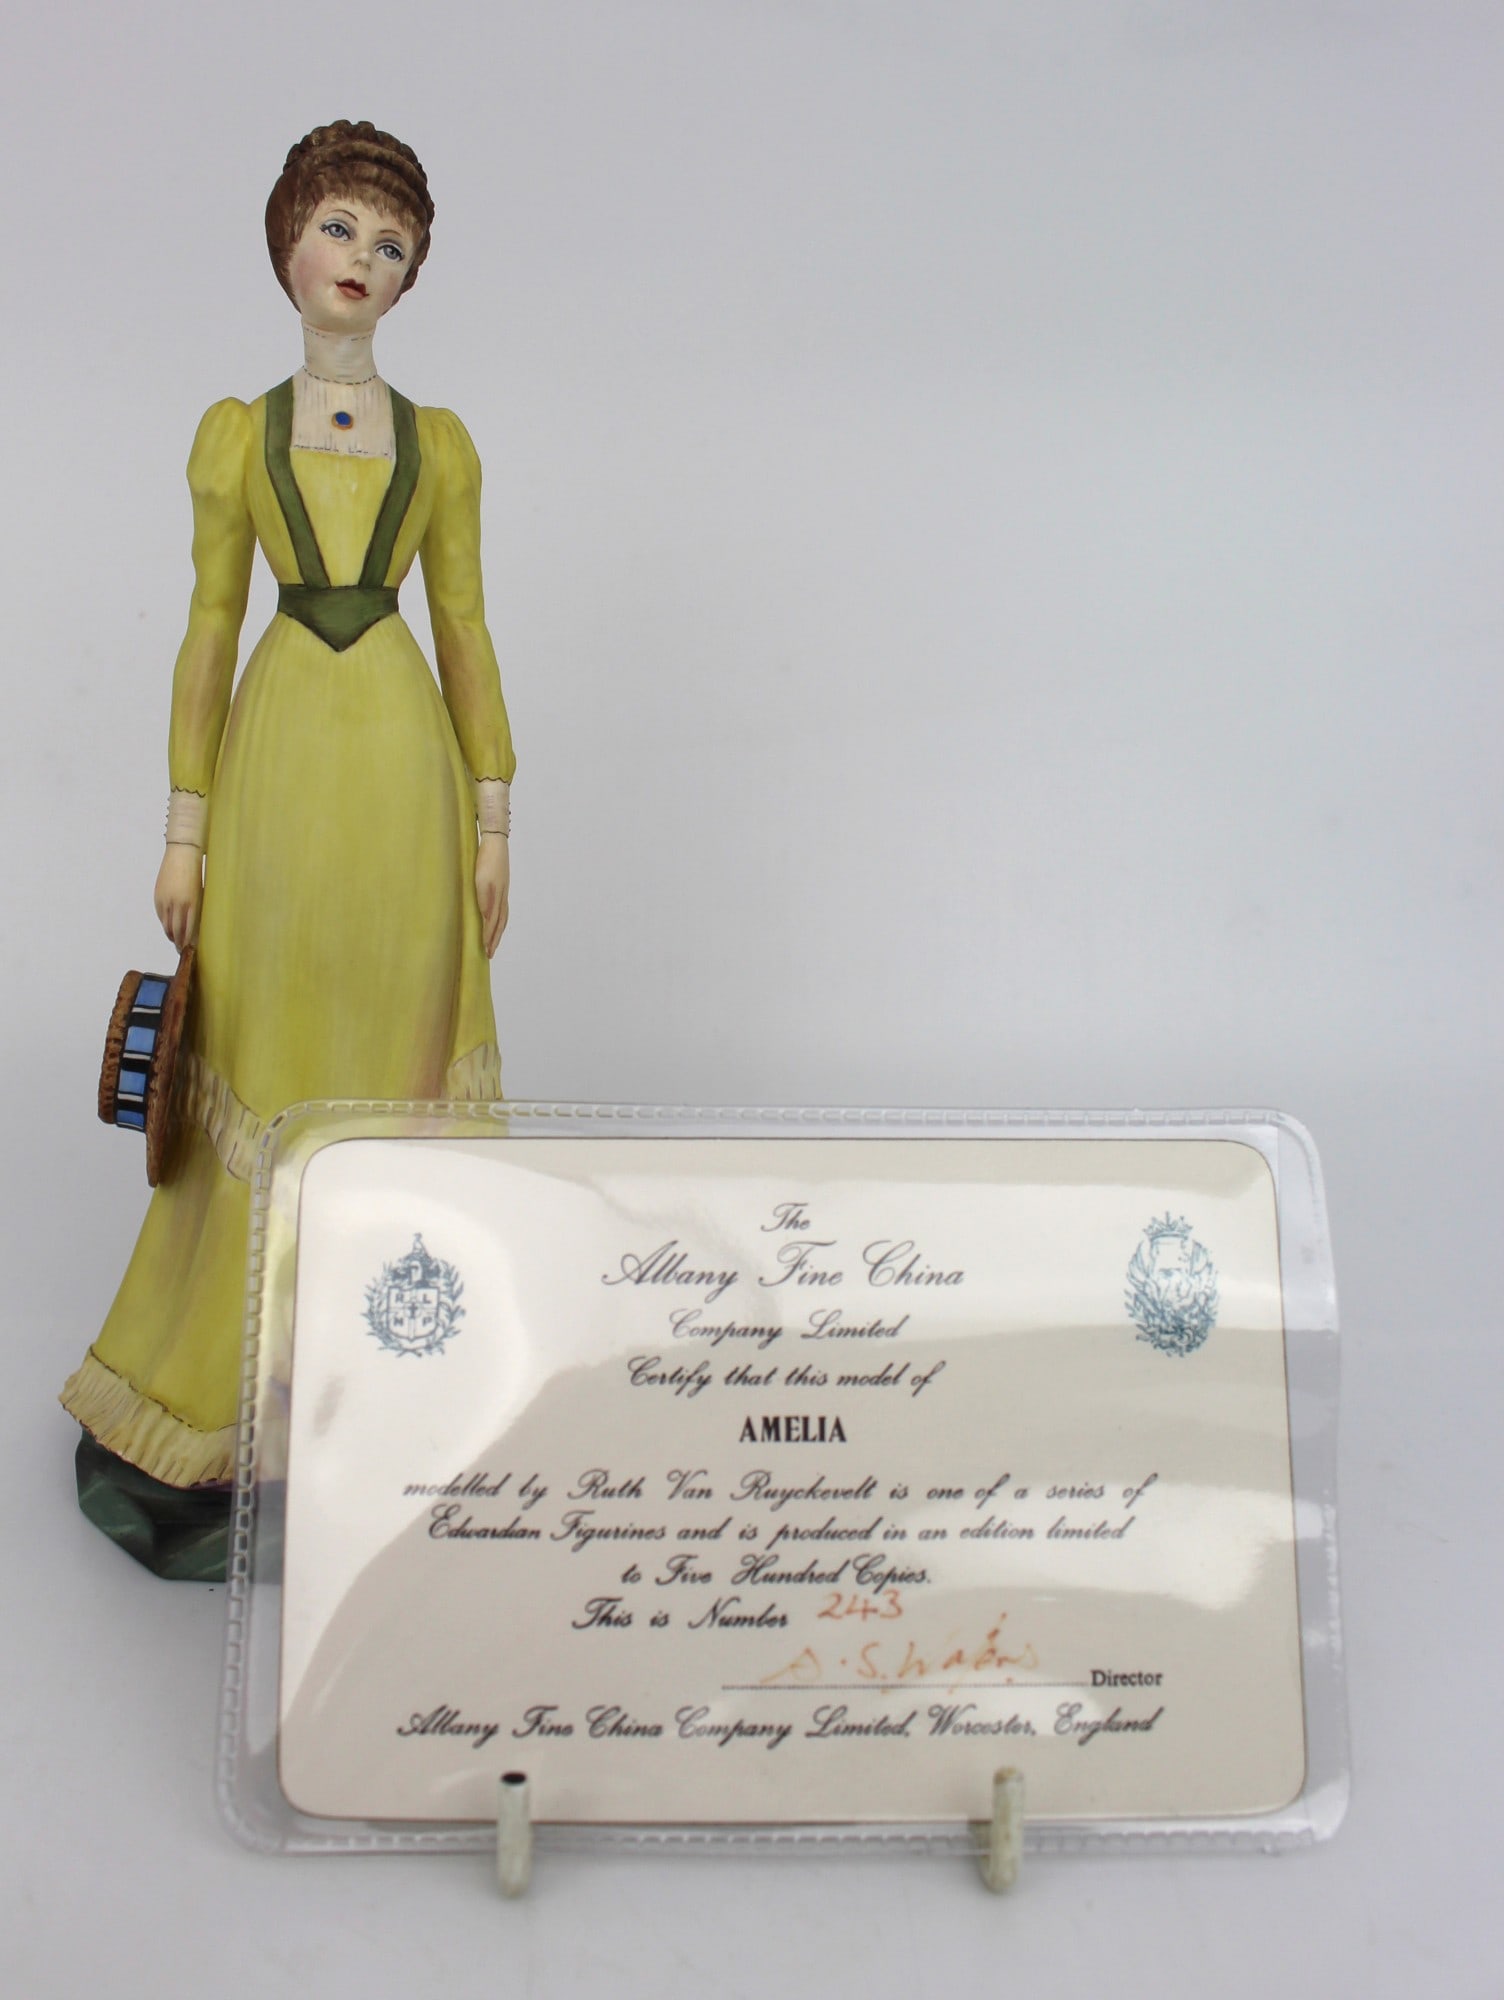 The
Albany Fine China
Company Limited
Certify that this model of
AMELIA
modelled by Ruth Van Ruyckevelt is one of a series of
Edwardian Figurines and is produced in an edition limited
to Five Hundred Copies.
This is Number 243
Director
Albany Fine China Company Limited, Worcester, England
R L